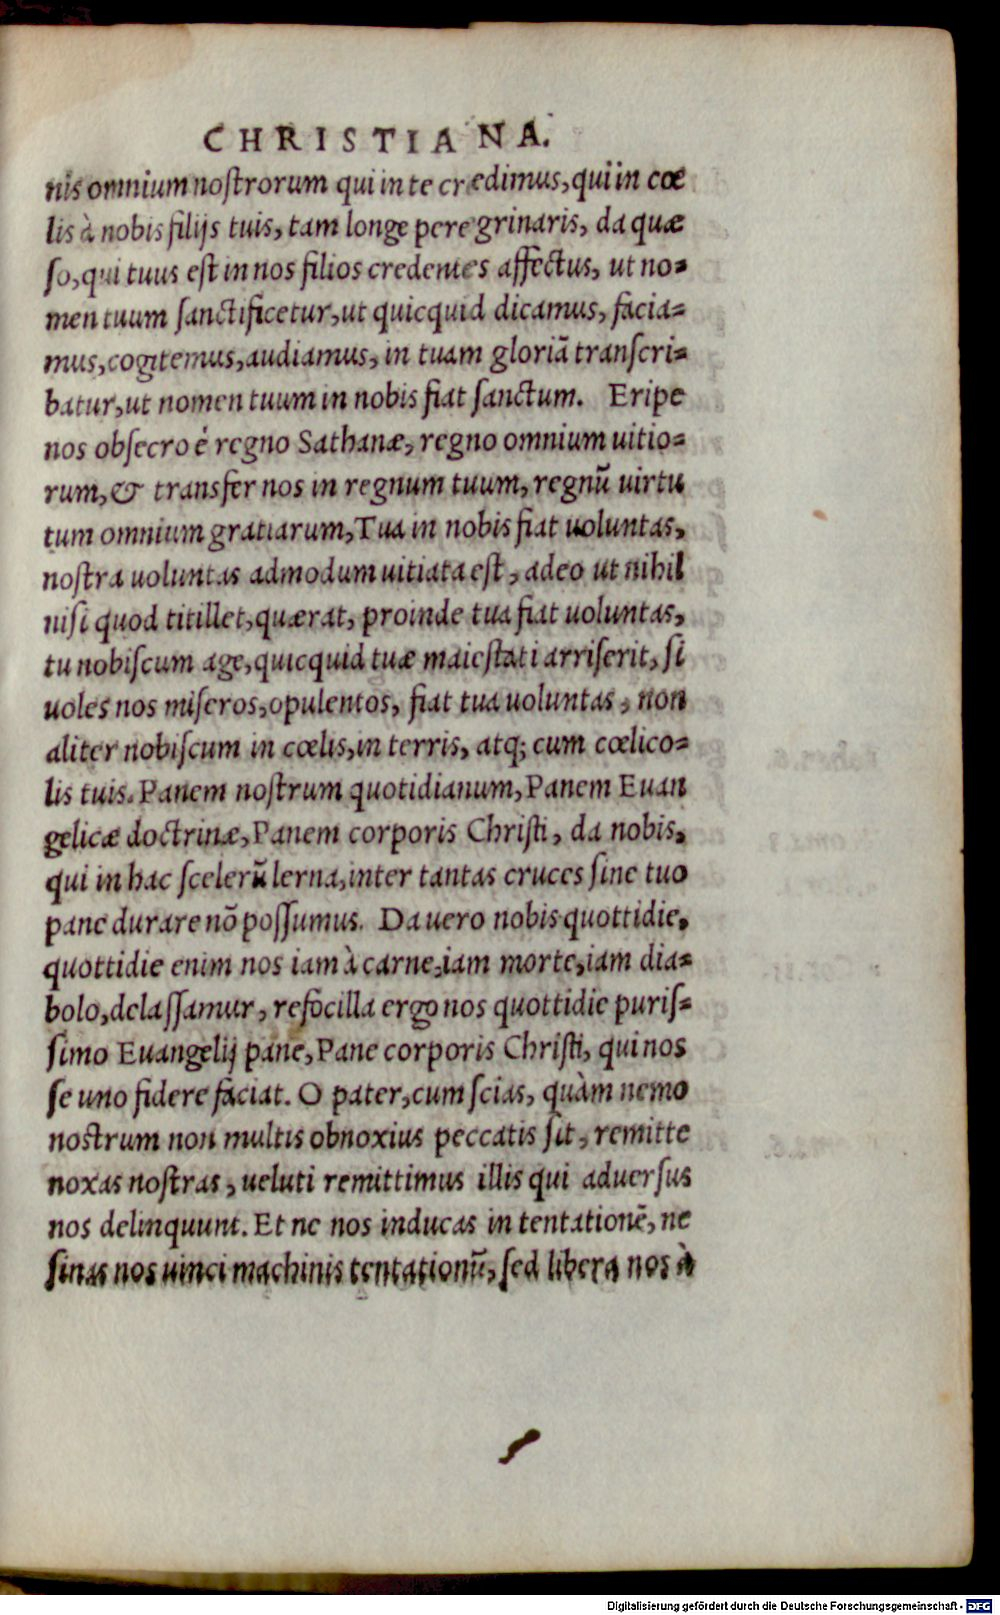 CHRISTIANA.
nis omnium nostrorum qui in te credimus, qui in cœ
lis à nobis filijs tuis, tam longe peregrinaris, da quæ
so, qui tuus est in nos filios credentes affectus, ut no-
men tuum sanctificetur, ut quicquid dicamus, facia-
mus, cogitemus, audiamus, in tuam gloriã transcri-
batur, ut nomen tuum in nobis fiat sanctum. Eripe
nos obsecro è regno Sathanæ, regno omnium uitio-
rum, & transfer nos in regnum tuum, regnũ uirtu
tum omnium gratiarum, Tua in nobis fiat uoluntas,
nostra uoluntas admodum uitiata est, adeo ut nihil
nisi quod titillet, quærat, proinde tua fiat uoluntas,
tu nobiscum age, quicquid tuæ maiestati arriserit, si
uoles nos miseros, opulentos, fiat tua uoluntas, non
aliter nobiscum in cœlis, in terris, atq; cum cœlico-
lis tuis. Panem nostrum quotidianum, Panem Euan
gelicæ doctrinæ, Panem corporis Christi, da nobis,
qui in hac scelerũ lerna, inter tantas cruces sine tuo
pane durare nõ possumus. Da uero nobis quottidie,
quottidie enim nos iam à carne, iam morte, iam dia-
bolo, delassamur, refocilla ergo nos quottidie puris-
simo Euangelij pane, Pane corporis Christi, qui nos
se uno fidere faciat. O pater, cum scias, quàm nemo
nostrum non multis obnoxius peccatis sit, remitte
noxas nostras, ueluti remittimus illis qui aduersus
nos delinquunt. Et ne nos inducas in tentationẽ, ne
sinas nos uinci machinis tentationũ, sed libera nos à
Digitalisierung gefördert durch die Deutsche Forschungsgemeinschaft - DFG